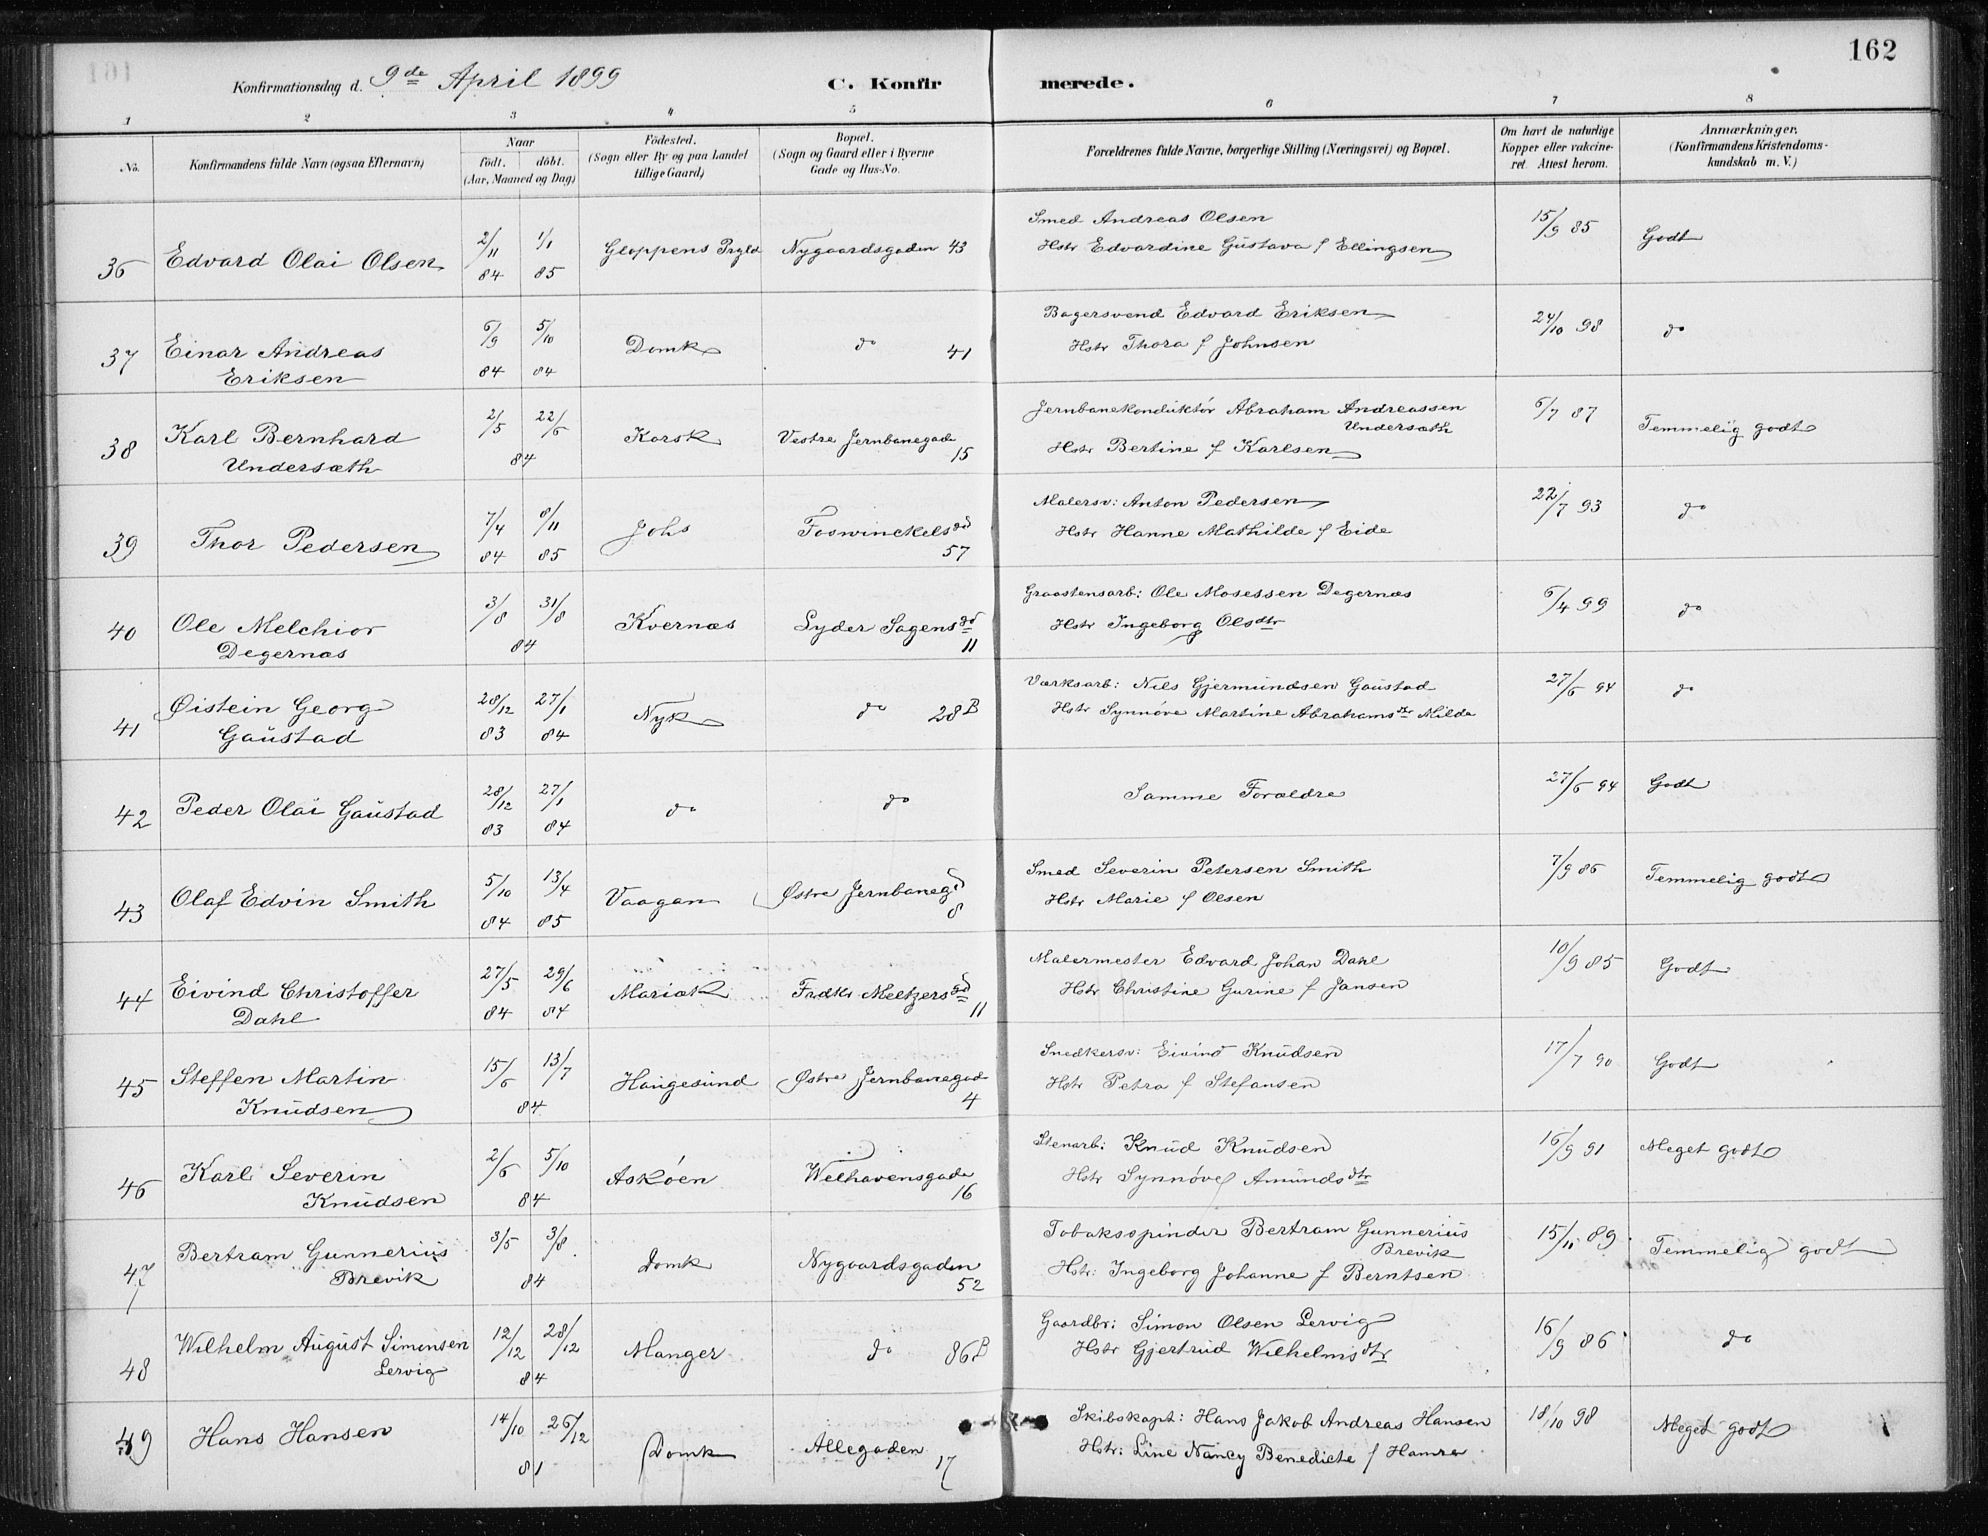 162
Konfirmationsdag d. 9de April 1899
C. Konfirmerede.
1 2 3 4 5 6 7 8
No.
Konfirmandens fulde Navn (ogsaa Efternavn)
Naar
födt. döbt.
(Aar, Maaned og Dag)
Födested.
(Sogn eller By og paa Landet
tillige Gaard)
Bopæl.
(Sogn og Gaard eller i Byerne
Gade og Hus-No.
Forældrenes fulde Navne, borgerlige Stilling (Næringsvei) og Bopæl.
Om havt de naturlige
Kopper eller vakcine-
ret. Attest herom.
Anmærkninger.
(Konfirmandens Kristendoms-
kundskab m. V.)
36 Edvard Olai Olsen 2/11 84 1/1 85 Gloppens Prgld Nygaardsgaden 43
Smed Andreas Olsen
Hstr Edvardine Gustava f Ellingsen
15/9 85 Godt
37 Einar Andreas
Eriksen 6/9 84 5/10 84 Domk do 41
Bagersvend Edvard Eriksen
Hstr Thora f Johnsen
24/10 98 do
38 Karl Bernhard
Undersæth 2/5 22/6 84 Korsk Vestre Jernbanegade
15
Jernbanekonduktör Abraham Andreassen
Undersæth
Hstr Bertine f Karlsen
6/7 87 Temmelig godt
39 Thor Pedersen 7/4 84 8/11 85 Johs Foswinckelsgd
57
Malersv: Anton Pedersen
Hstr Hanne Mathilde f Eide
22/7 93 do
40 Ole Melchior
Degernæs 3/8 31/8 84 Kvernæs Lyder Sagensgd
11
Graastensarb: Ole Mosessen Degernæs
Hstr Ingeborg Olsdtr
6/4 99 do
41 Øistein Georg
Gaustad 28/12 83 27/1 84 Nyk do 28B
Værksarb: Nils Gjermundsen Gaustad
Hstr Synnøve Martine Abrahamsdtr Milde
27/6 94 do
42 Peder Olai Gaustad 28/12 83 27/1 84 do do
Samme Forældre
27/6 94 Godt
43 Olaf Edvin Smith 5/10 84 13/4 85 Vaagan Østre Jernbanegd
8
Smed Severin Petersen Smith
Hstr Marie f Olsen
7/9 86 Temmelig godt
44 Eivind Christoffer
Dahl 27/5 84 29/6 84 Mariæk Fredkr Meltzersgd
11
Malermester Edvard Johan Dahl
Hstr Christine Gurine f Jansen
10/9 85 Godt
45 Steffen Martin
Knudsen 15/6 13/7 84 Haugesund Østre Jernbanegad
4
Snedkersv: Eivind Knudsen
Hstr Petra f Stefansen
17/7 90 Godt
46 Karl Severin
Knudsen 2/6 5/10 84 Askøen Welhavensgade
16
Stenarb: Knud Knudsen
Hstr Synnøve Amundsdtr
16/9 91 Meget godt
47 Bertram Gunnerius
Brevik 3/5 3/8 84 Domk Nygaardsgaden
52
Tobaksspinder Bertram Gunnerius
Brevik
Hstr: Ingeborg Johanne f Berntsen
15/11 89 Temmelig godt
48 Wilhelm August Simonsen
Lervig 12/12 28/12 84 Manger do 86B
Gaardbr: Simon Olsen Lervig
Hstr Gjertrud Wilhelmsdtr
16/9 86 do
49 Hans Hansen 14/10 26/12 81 Domk Allegaden
17
Skibskapt: Hans Jakob Andreas Hansen
Hstr: Line Nancy Benedicte f Hamre
18/10 98 Meget godt